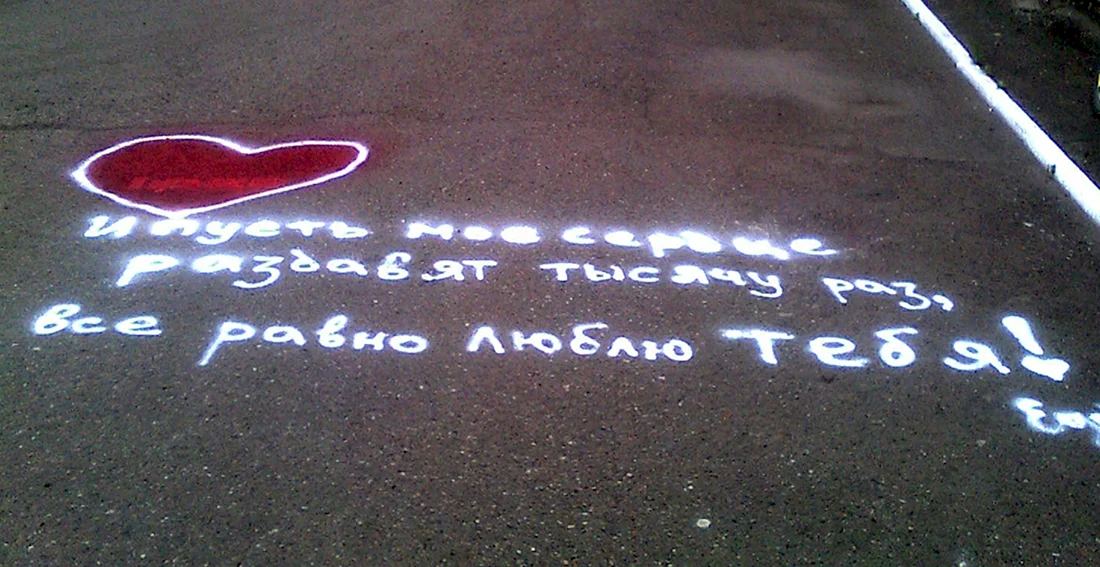 И пусть мое сердце
раздавят тысячу раз,
все равно люблю тебя!